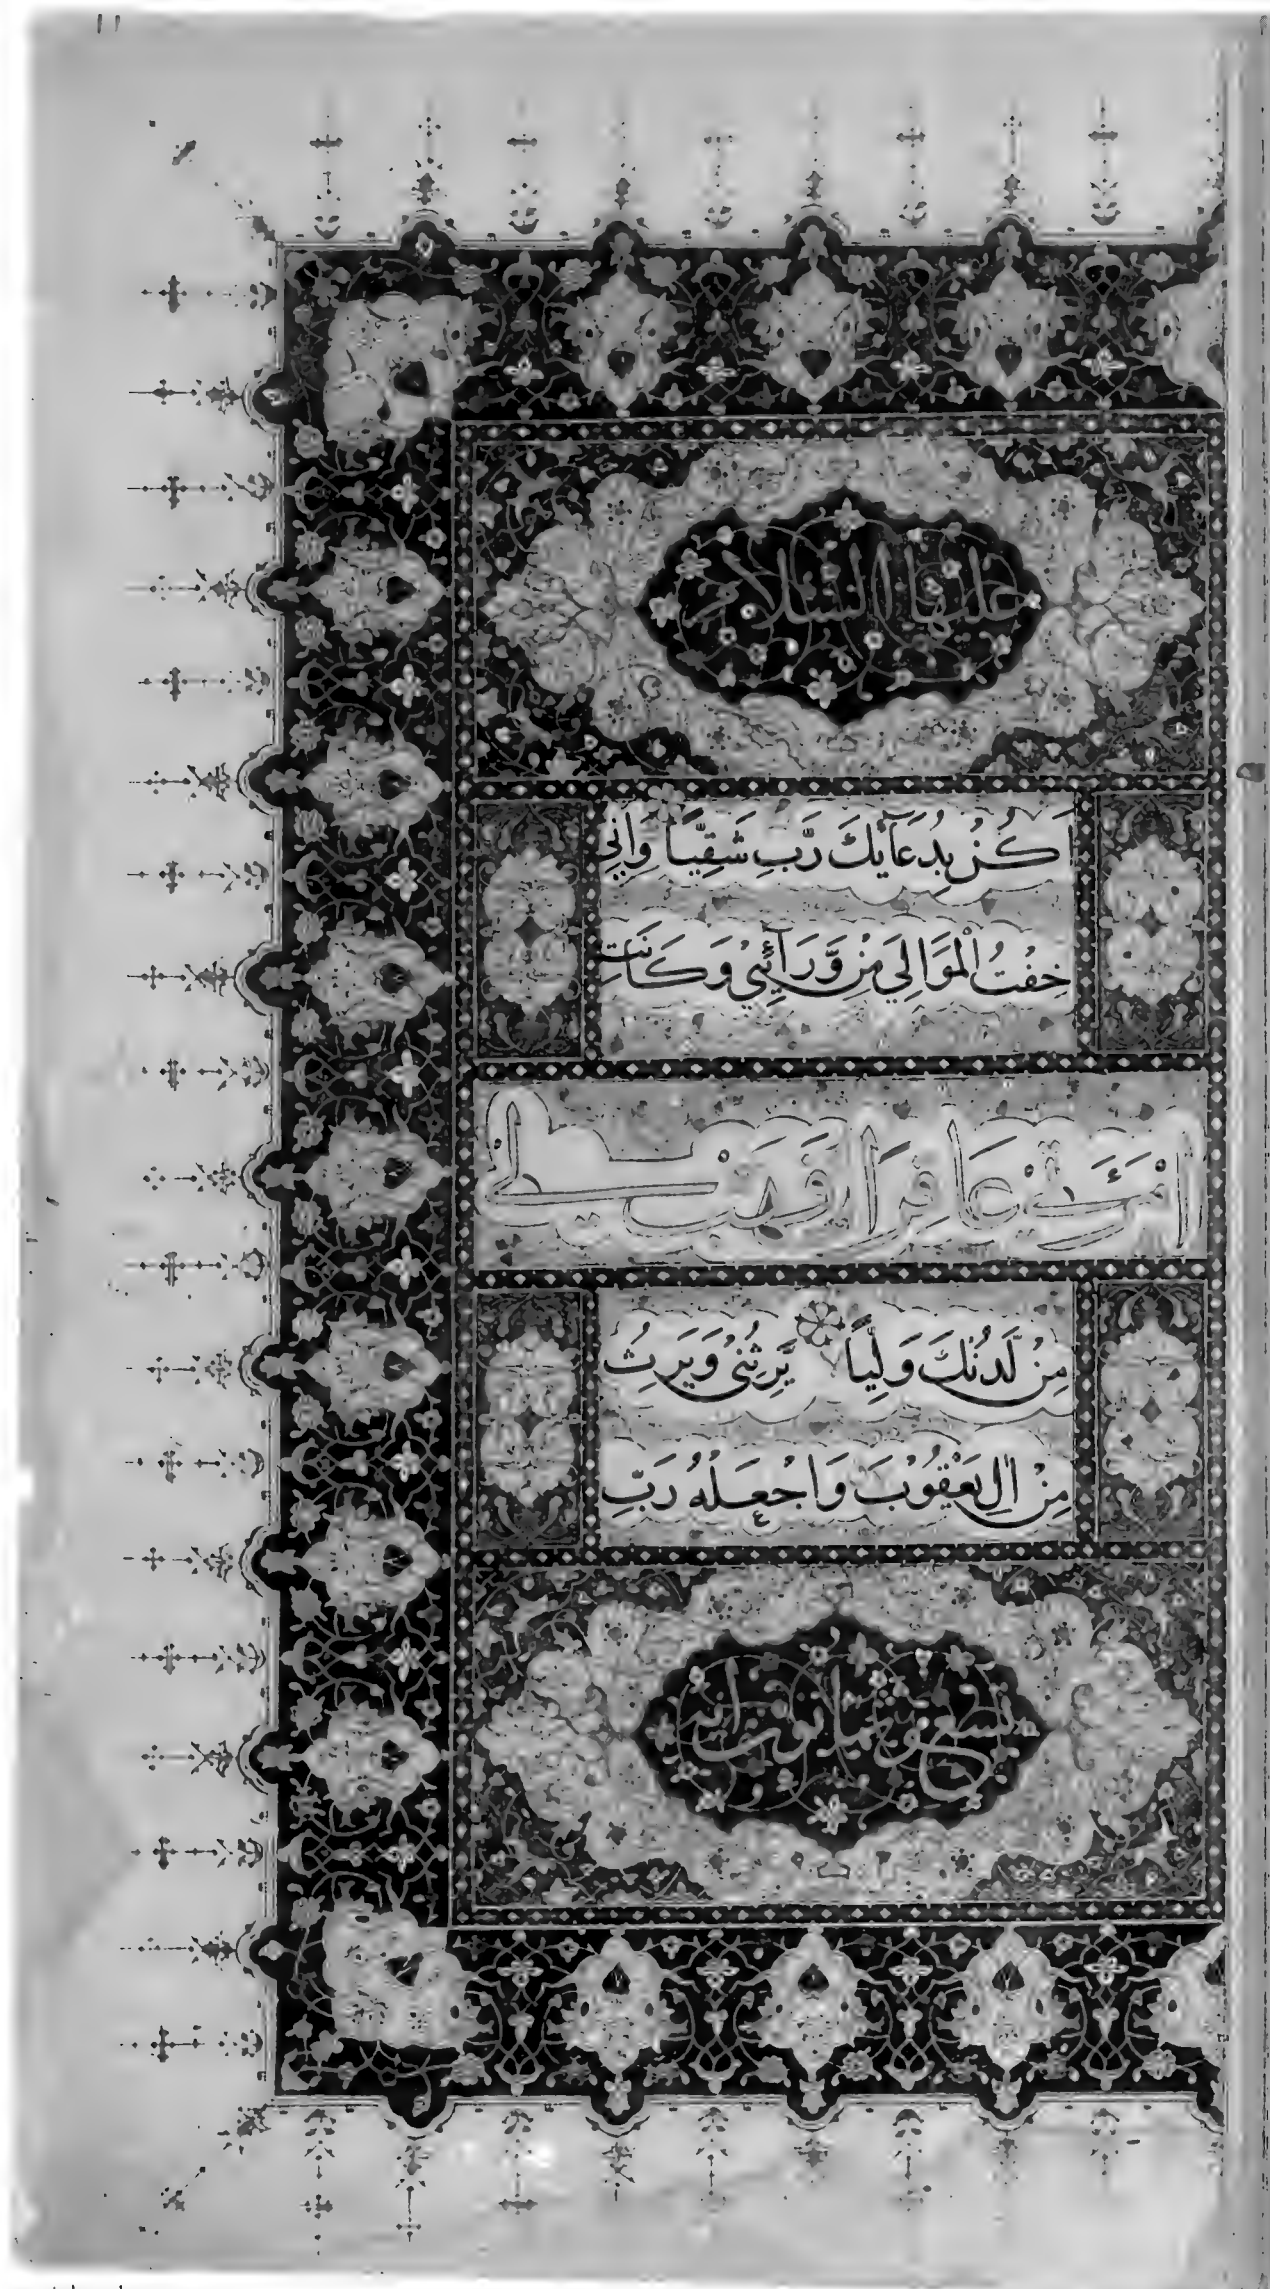 عليها السلام
اَكُنْ بِدُعَآئِكَ رَبِّ شَقِيًّا وَاِنِّي
خِفْتُ الْمَوَالِيَ مِنْ وَّرَآئِيْ وَكَانَتِ
امْرَاَتِيْ عَاقِرًا فَهَبْ لِيْ
مِنْ لَّدُنْكَ وَلِيًّا يَّرِثُنِيْ وَيَرِثُ
مِنْ اٰلِ يَعْقُوْبَ وَاجْعَلْهُ رَبِّ
تسعون وثمان اية